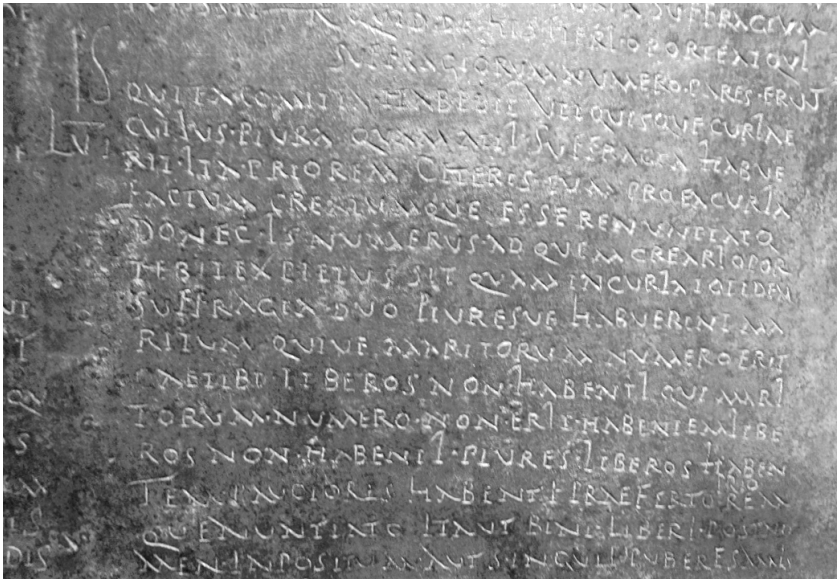 QUID DE HIS FIERI OPORTEAT QUI
SUFFRAGIORUM NUMERO PARES ERUNT
IS QUI EA COMITIA HABEBIT UTI QUISQUE CURIAE
LVI CUIUS PLURA QUAM ALII SUFFRAGIA HABUE
RIT ITA PRIOREM CETERIS EUM PRO EA CURIA
FACTUM CREATUMQUE ESSE RENUNTIATO
DONEC IS NUMERUS AD QUEM CREARI OPOR
TEBIT EXPLETUS SIT QUAM IN CURIA TOTIDEM
SUFFRAGIA DUO PLURESUE HABUERINT MA
RITUM QUIVE MARITORUM NUMERO ERIT
CAELIBI LIBEROS NON HABENTI QUI MARI
TORUM NUMERO NON ERIT HABENTEM LIBE
ROS NON HABENTI PLURES LIBEROS HABEN
TEM PAUCIORES HABENTI PRAEFERTO PRIOREM
QUE NUNTIATO ITA UT BINI LIBERI POST NO
MEN INPOSITUM AUT SINGULI PUBERES AMIS